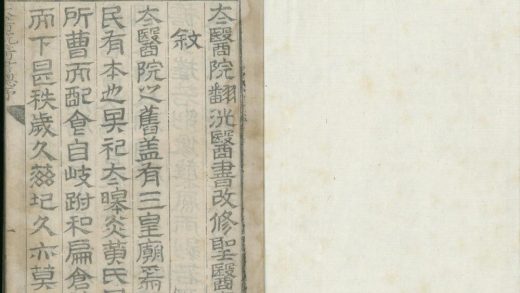 夳醫院翻洗醫書改修聖醫
敘
夳醫院之舊蓋有三皇廟焉
民有本也其祀夳皞炎黃氏
所曹而配食自岐跗和扁倉
而下昰秩歲久茲圮久亦莫